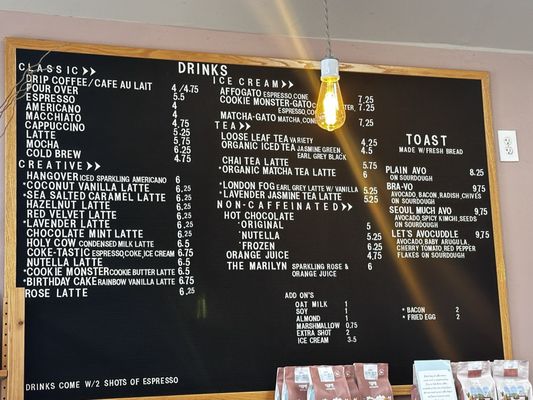 CLASSIC >>
DRIP COFFEE/CAFE AU LAIT 4/4.75
POUR OVER 5.5
ESPRESSO 4
AMERICANO 4
MACCHIATO 4
CAPPUCCINO 4.75
LATTE 5.25
MOCHA 5.75
COLD BREW 4.75
CREATIVE >>
HANGOVER ICED SPARKLING AMERICANO 6
*COCONUT VANILLA LATTE 6.25
*SEA SALTED CARAMEL LATTE 6.25
HAZELNUT LATTE 6.25
RED VELVET LATTE 6.25
*LAVENDER LATTE 6.25
CHOCOLATE MINT LATTE 6.25
HOLY COW CONDENSED MILK LATTE 6.5
COKE-TASTIC ESPRESSO, COKE, ICE CREAM 6.75
NUTELLA LATTE 6.5
*COOKIE MONSTER COOKIE BUTTER LATTE 6.5
*BIRTHDAY CAKE RAINBOW VANILLA LATTE 6.75
ROSE LATTE 6.25
DRINKS COME W/2 SHOTS OF ESPRESSO
DRINKS
ICE CREAM >>
AFFOGATO ESPRESSO, CONE 7.25
COOKIE MONSTER-GATO 7.25
MATCHA-GATO MATCHA, CONE
TEA >>
LOOSE LEAF TEA VARIETY 4.25
ORGANIC ICED TEA JASMINE GREEN, 4.5
EARL GREY BLACK
CHAI TEA LATTE 5.75
*ORGANIC MATCHA TEA LATTE 6
*LONDON FOG EARL GREY LATTE W/ VANILLA 5.25
*LAVENDER JASMINE TEA LATTE 5.25
NON-CAFFEINATED >>
HOT CHOCOLATE
*ORIGINAL 5
*NUTELLA 5.25
*FROZEN 6.25
ORANGE JUICE 4.75
THE MARILYN SPARKLING ROSE & 6
ORANGE JUICE
ADD ON'S
OAT MILK 1
SOY 1
ALMOND 1
MARSHMALLOW 0.75
EXTRA SHOT 2
ICE CREAM 3.5
TOAST
MADE W/FRESH BREAD
PLAIN AVO 8.25
ON SOURDOUGH
BRA-VO 9.75
AVOCADO, BACON, RADISH, CHIVES
ON SOURDOUGH
SEOULD MUCH AVO 9.75
AVOCADO, SPICY KIMCHI, SEEDS
ON SOURDOUGH
LET'S AVOCUDDLE 9.75
AVOCADO, BABY ARUGULA,
CHERRY TOMATO RED PEPPER
FLAKES ON SOURDOUGH
*BACON 2
*FRIED EGG 2